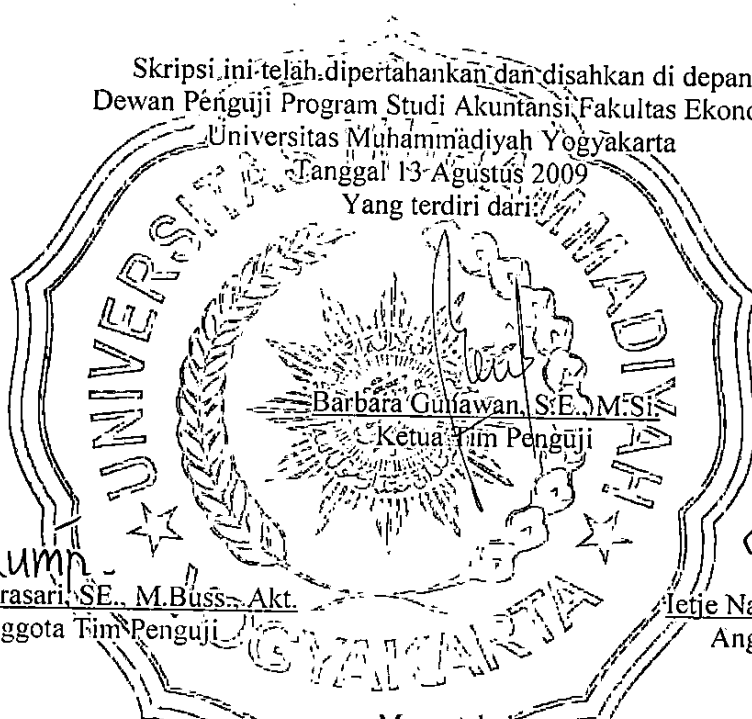 Skripsi ini telah dipertahankan dan disahkan di depan
Dewan Penguji Program Studi Akuntansi Fakultas Ekono
Universitas Muhammadiyah Yogyakarta
Tanggal 13 Agustus 2009
Yang terdiri dari:
UNIVERSITAS MUHAMMADIYAH
Barbara Gunawan, S.E., M.Si.
Ketua Tim Penguji
rasari, SE., M.Buss., Akt.
ggota Tim Penguji
Ietje Na
Ang
YOGYAKARTA